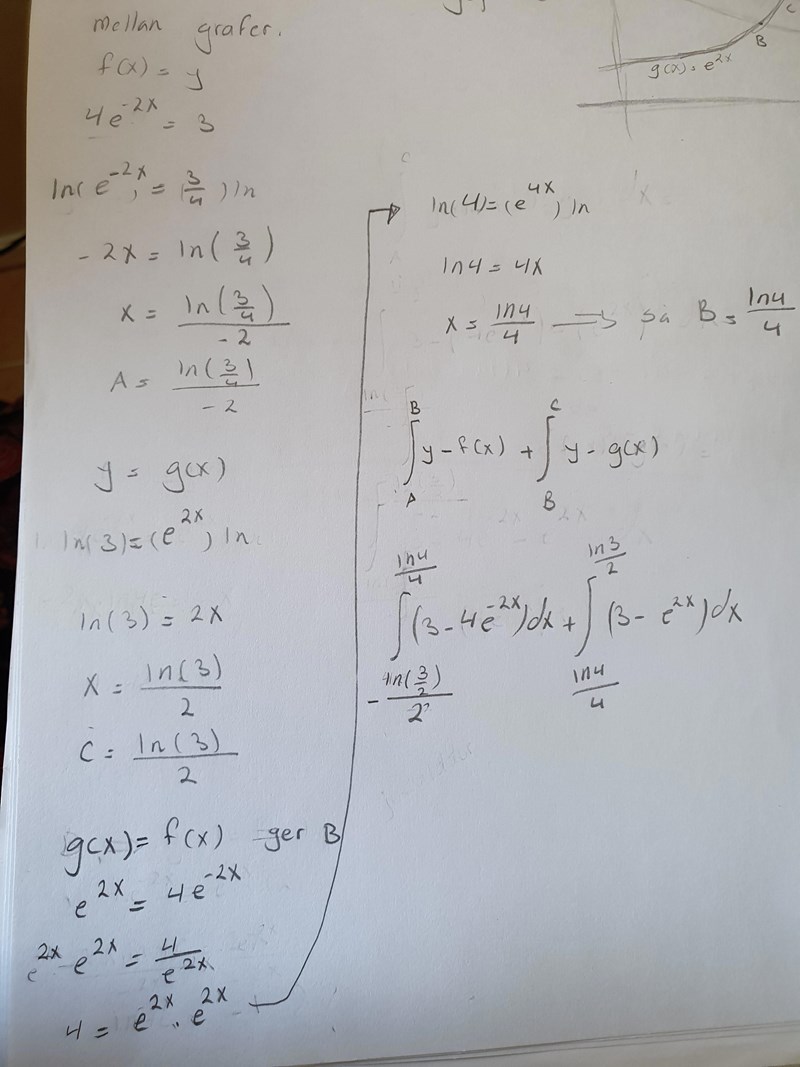 mellan grafer.
f(x) = y
4e^-2x = 3
ln(e^-2x) = (3/4) ln
-2x = ln(3/4)
x = ln(3/4) / -2
A = ln(3/4) / -2
y = g(x)
ln(3) = (e^2x) ln
ln(3) = 2x
x = ln(3) / 2
C = ln(3) / 2
g(x) = f(x) ger B
e^2x = 4e^-2x
e^2x e^2x = 4 / e^2x
4 = e^2x · e^2x
C
B
g(x) = e^2x
ln(4) = (e^4x) ln
ln4 = 4x
x = ln4/4 ⟹ så B = ln4/4
∫_A^B y - f(x) + ∫_B^C y - g(x)
∫_{-ln(3/2)/2}^{ln4/4} (3 - 4e^-2x) dx + ∫_{ln4/4}^{ln3/2} (3 - e^2x) dx